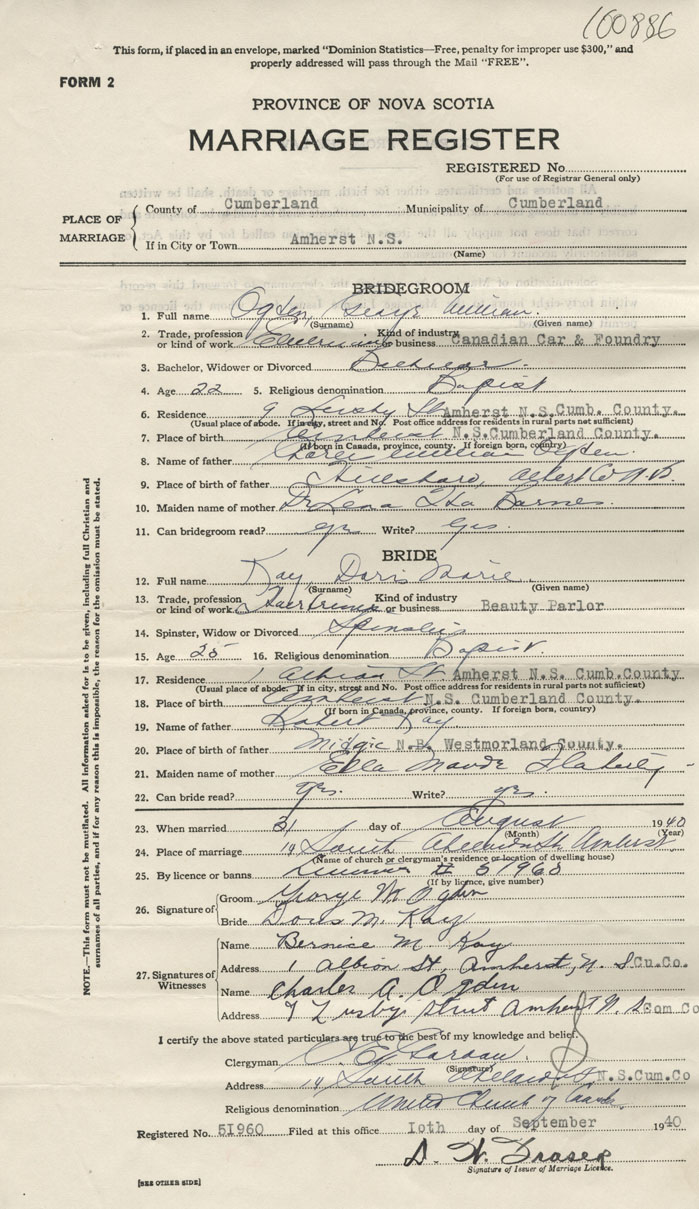 100886
This form, if placed in an envelope, marked "Dominion Statistics—Free, penalty for improper use $300," and
properly addressed will pass through the Mail "FREE".
FORM 2
PROVINCE OF NOVA SCOTIA
MARRIAGE REGISTER
REGISTERED No.
(For use of Registrar General only)
PLACE OF MARRIAGE
County of Cumberland Municipality of Cumberland
If in City or Town Amherst N.S.
(Name)
BRIDEGROOM
1. Full name Ogden, George William.
(Surname) (Given name)
2. Trade, profession or kind of work Kind of industry or business Canadian Car & Foundry
3. Bachelor, Widower or Divorced Bachelor
4. Age 22 5. Religious denomination Baptist
6. Residence 9 Lusby St Amherst N.S. Cumb. County.
(Usual place of abode. If in city, street and No. Post office address for residents in rural parts not sufficient)
7. Place of birth Amherst N.S. Cumberland County.
(If born in Canada, province, county. If foreign born, country)
8. Name of father William Ogden.
9. Place of birth of father Hillsboro, Albert Co N.B.
10. Maiden name of mother Lena Barnes.
11. Can bridegroom read? yes. Write? yes.
BRIDE
12. Full name Kay, Doris Marie
(Surname) (Given name)
13. Trade, profession or kind of work Kind of industry or business Beauty Parlor
14. Spinster, Widow or Divorced Spinster
15. Age 25 16. Religious denomination Baptist.
17. Residence 1 Albion St Amherst N.S. Cumb. County
(Usual place of abode. If in city, street and No. Post office address for residents in rural parts not sufficient)
18. Place of birth Amherst N.S. Cumberland County.
(If born in Canada, province, county. If foreign born, country)
19. Name of father Robert Kay
20. Place of birth of father Midgic N.B. Westmorland County.
21. Maiden name of mother Ella Maude Flaherty
22. Can bride read? yes. Write? yes.
23. When married 31 day of August 1940
(Month) (Year)
24. Place of marriage 14 South Albion St Amherst
(Name of church or clergyman's residence or location of dwelling house)
25. By licence or banns License # 51960
(If by licence, give number)
26. Signature of
Groom George W Ogden
Bride Doris M. Kay
27. Signatures of Witnesses
Name Bernice M. Kay
Address 1 Albion St, Amherst, N.S Cu.Co.
Name Charles A. Ogden
Address 9 Lusby Street Amherst N.S Com.Co
I certify the above stated particulars are true to the best of my knowledge and belief.
Clergyman
(Signature)
Address 14 South N.S.Cum.Co
Religious denomination United Church of Canada.
Registered No. 5I960 Filed at this office Ioth day of September 1940
D. W. Fraser
Signature of Issuer of Marriage Licence.
[SEE OTHER SIDE]
NOTE.—This form must not be mutilated. All information asked for is to be given, including full Christian and
surnames of all parties, and if for any reason this is impossible, the reason for the omission must be stated.